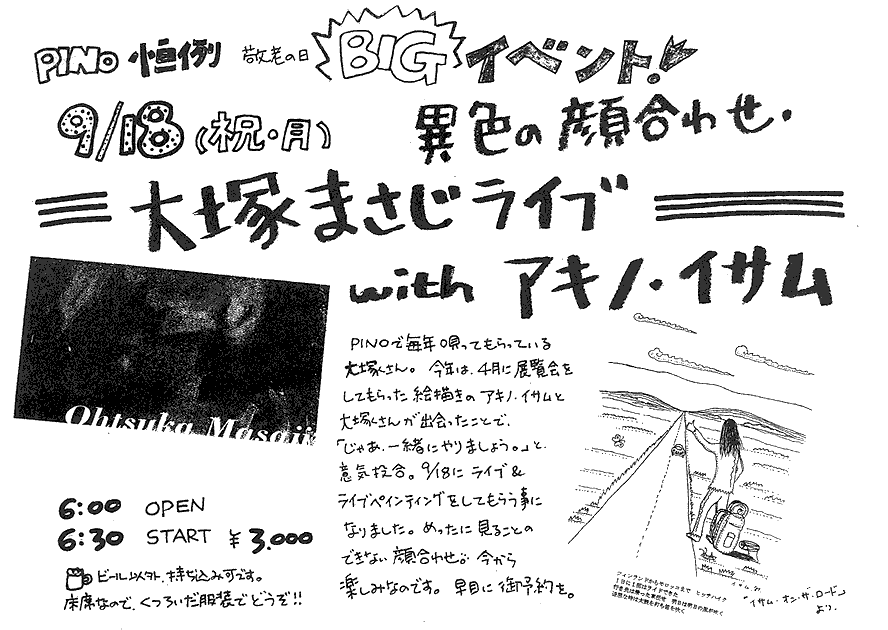 PINO 恒例 敬老の日 BIG イベント!
9/18 (祝・月) 異色の顔合わせ・
大塚まさじライブ
with アキノ・イサム
Ohtsuka Masaji
PINOで毎年唄ってもらっている
大塚さん。今年は、4月に展覧会を
してもらった絵描きのアキノ・イサムと
大塚さんが出会ったことで、
「じゃあ、一緒にやりましょう。」と
意気投合。9/18にライブ&
ライブペインティングをしてもらう事に
なりました。めったに見ることの
できない顔合わせが今から
楽しみなのです。早目に御予約を。
6:00 OPEN
6:30 START ¥3.000
ビール以外、持ち込み可です。
床席なので、くつろいだ服装でどうぞ!!
フィンランドからモロッコまで ヒッチハイク
1日に1回はライドできた
イサム.
「イサム・オン・ザ・ロード」
より.